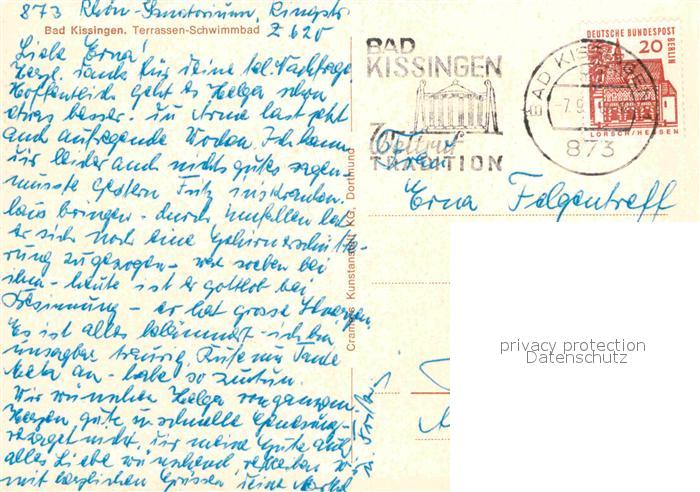 873 Rhön-Sanatorium, Ringstr.
Z 620
Bad Kissingen. Terrassen-Schwimmbad
Liebe Erna!
Herzl. Dank für Deine tel. Nachfrage
Hoffentlich geht es Helga schon
etwas besser. Du Arme hast jetzt
auch aufregende Wochen. Ich kann
Dir leider auch nichts gutes sagen
musste gestern Fritz ins Kranken-
haus bringen - durch Umfallen hat
er sich noch eine Gehirnerschütte-
rung zugezogen - war soeben bei
ihm - heute ist er gottlob bei
Besinnung - er hat grosse Schmerzen
Es ist alles belämmert - ich bin
unsagbar traurig. Rufe nur Tante
Meta an - habe so zutun.
Wir wünschen Helga von ganzem
Herzen gute u. schnelle Genesung -
verzaget nicht. Dir meine Gute auch
alles Liebe wünschend
mit herzlichen Grüssen Deine
Cramers Kunstanstalt KG., Dortmund
BAD
KISSINGEN
Weltruf
TRADITION
BAD KISSINGEN
-7.9
873
DEUTSCHE BUNDESPOST
BERLIN
20
LORSCH/HESSEN
Frau
Erna Felgentreff
privacy protection
Datenschutz